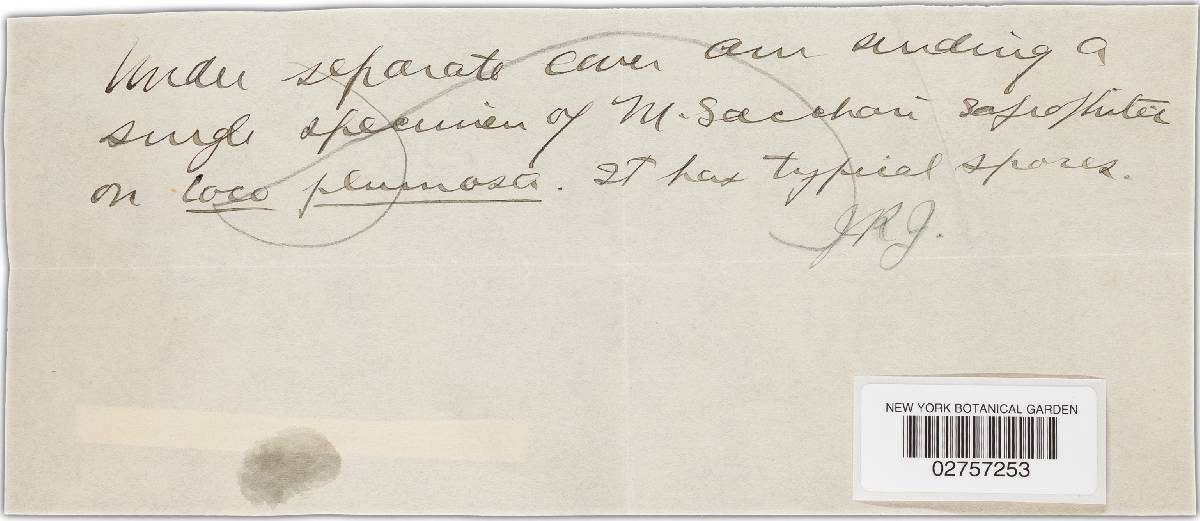 Under separate cover am sending a
single specimen of M. Sacchari saprophitic
on Coco plumosa. It has typical spores.
JRJ.
NEW YORK BOTANICAL GARDEN
02757253